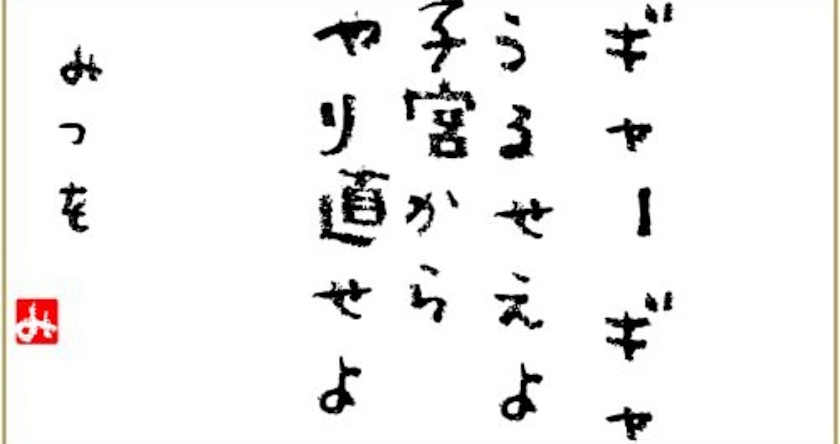 ギャーギャ
うるせえよ
子宮から
やり直せよ
みつを
み